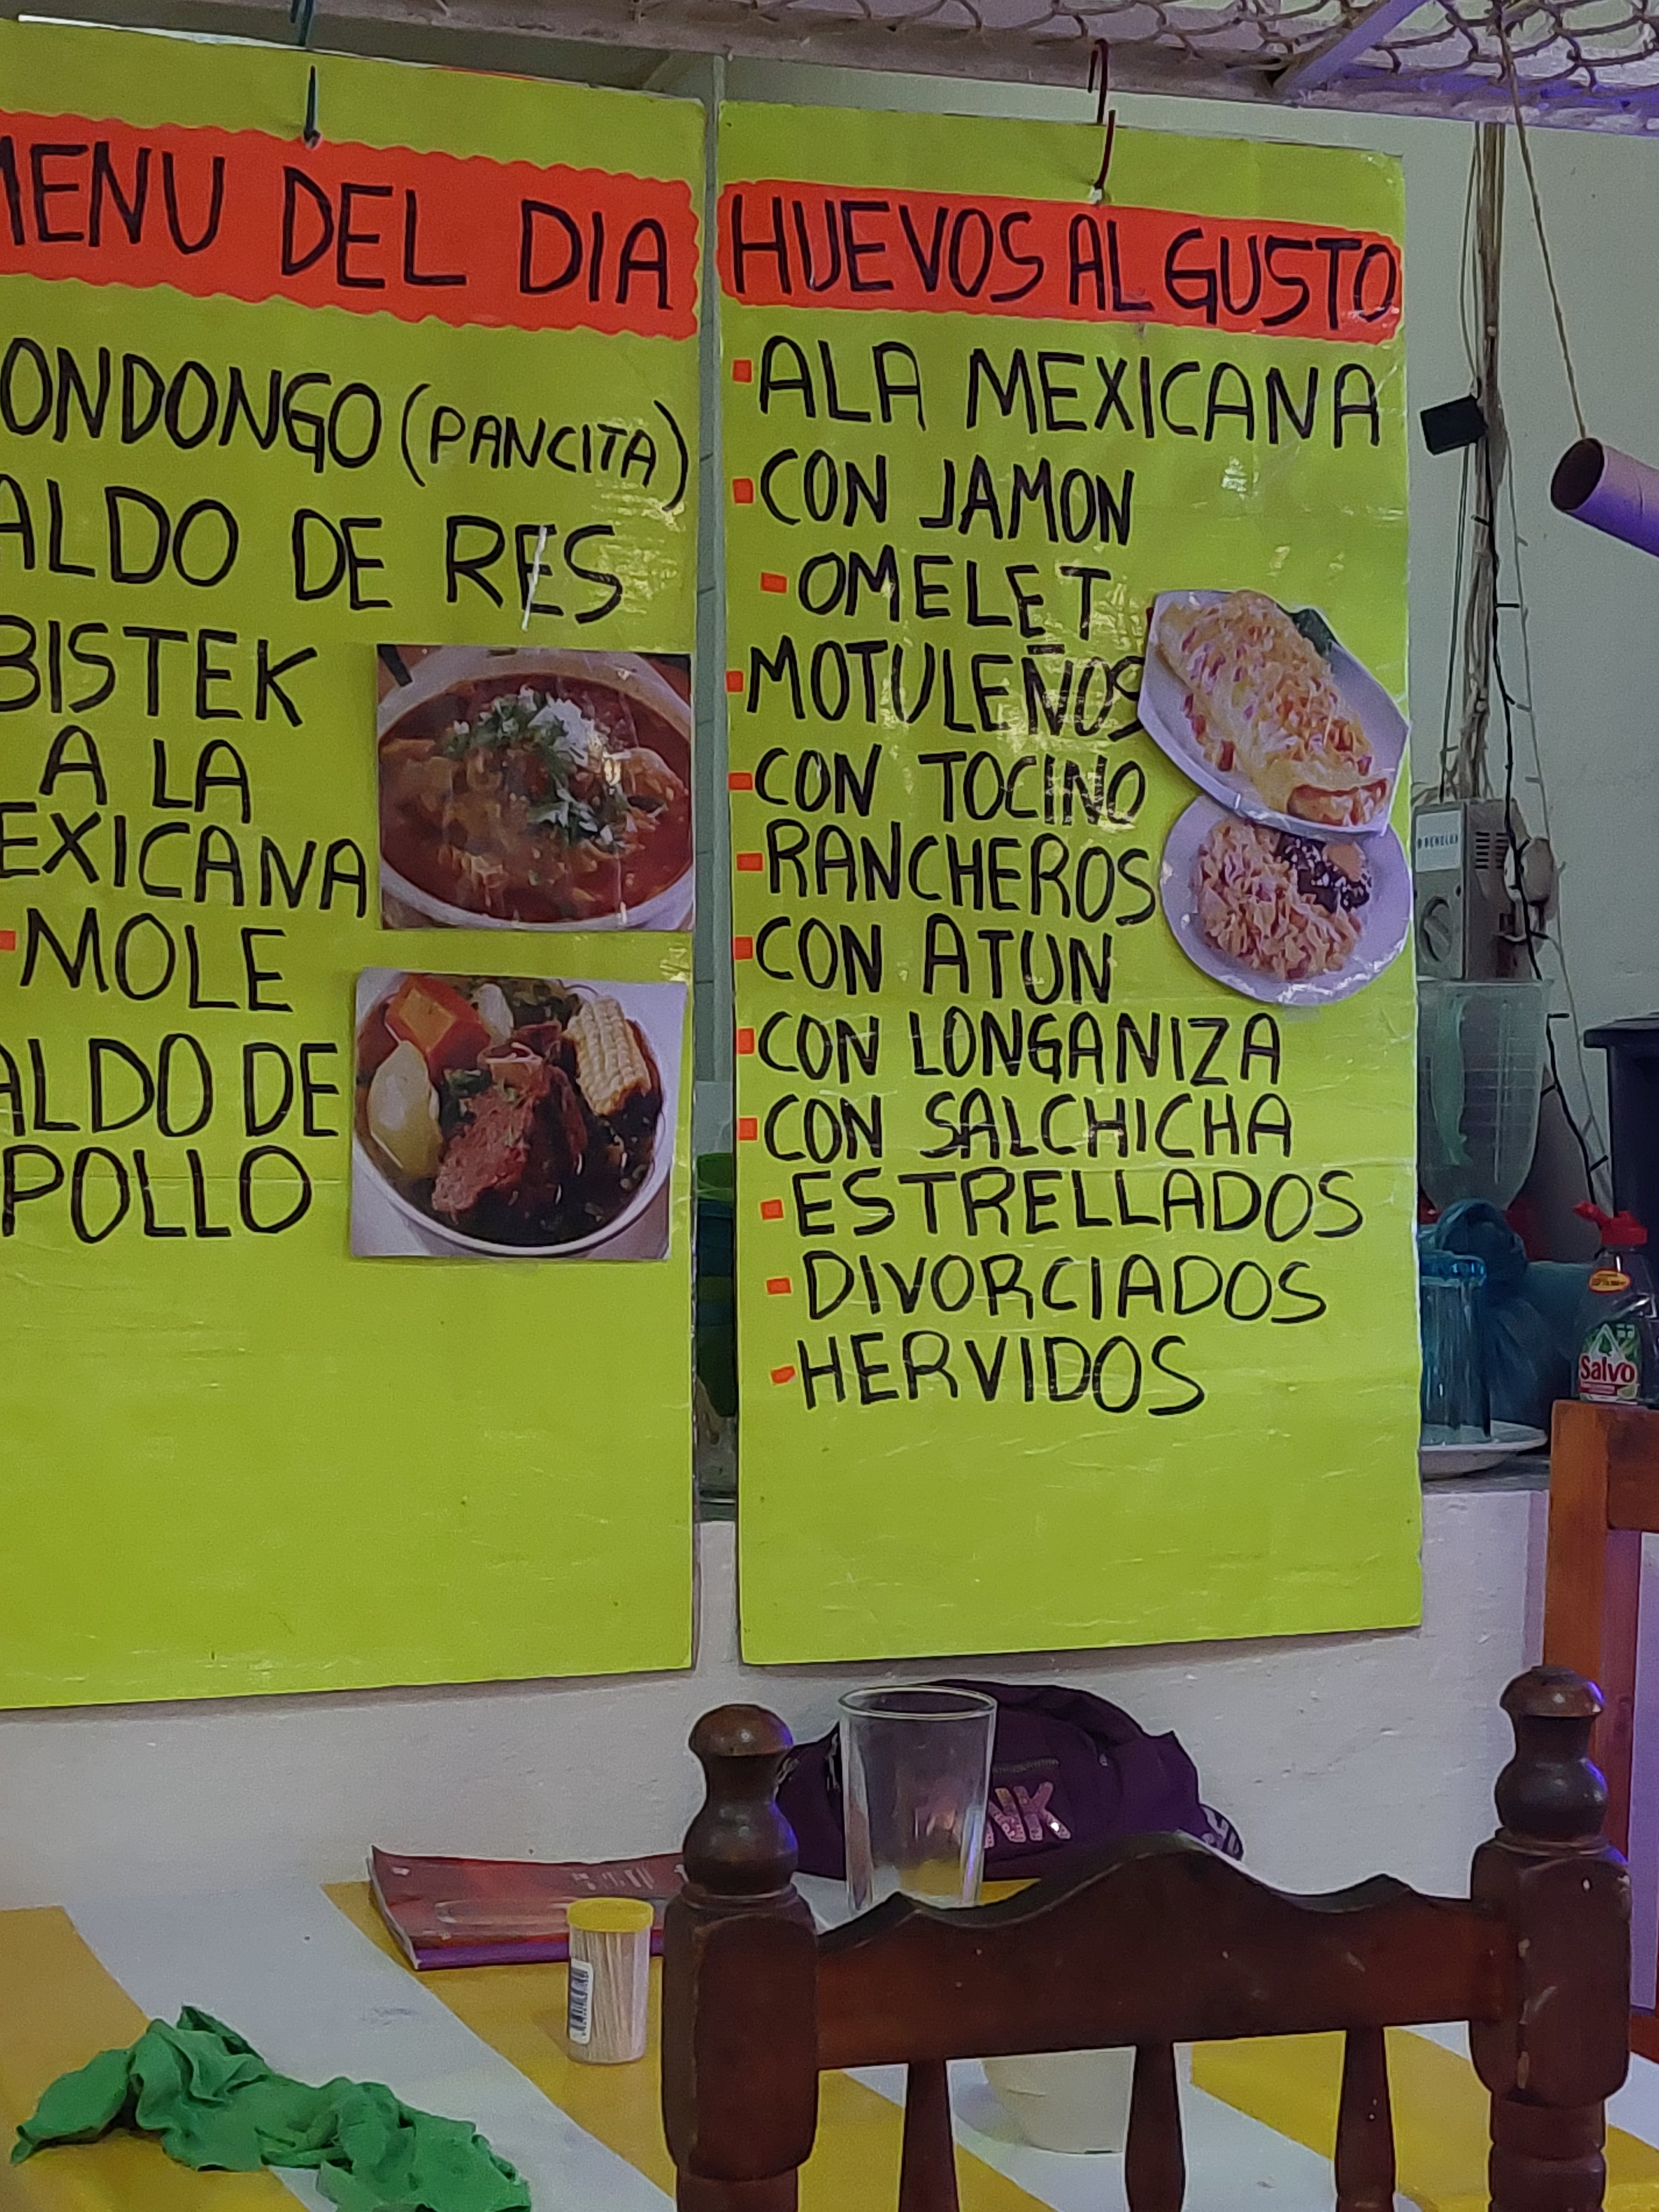 MENU DEL DIA
ONDONGO (PANCITA)
ALDO DE RES
BISTEK
A LA
EXICANA
MOLE
ALDO DE
POLLO
HUEVOS AL GUSTO
ALA MEXICANA
CON JAMON
OMELET
MOTULEÑOS
CON TOCINO
RANCHEROS
CON ATUN
CON LONGANIZA
CON SALCHICHA
ESTRELLADOS
DIVORCIADOS
HERVIDOS
Salvo
NK